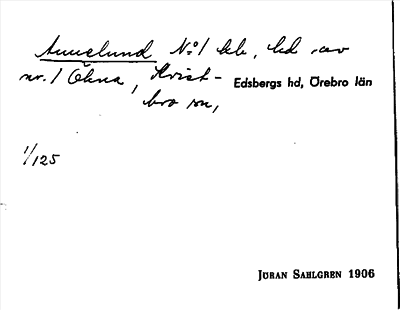 Annelund No 1 lhe, hd av
nr. 1 Ökna, Kvist-
bro sn,
Edsbergs hd, Örebro län
1/125
JÖRAN SAHLGREN 1906